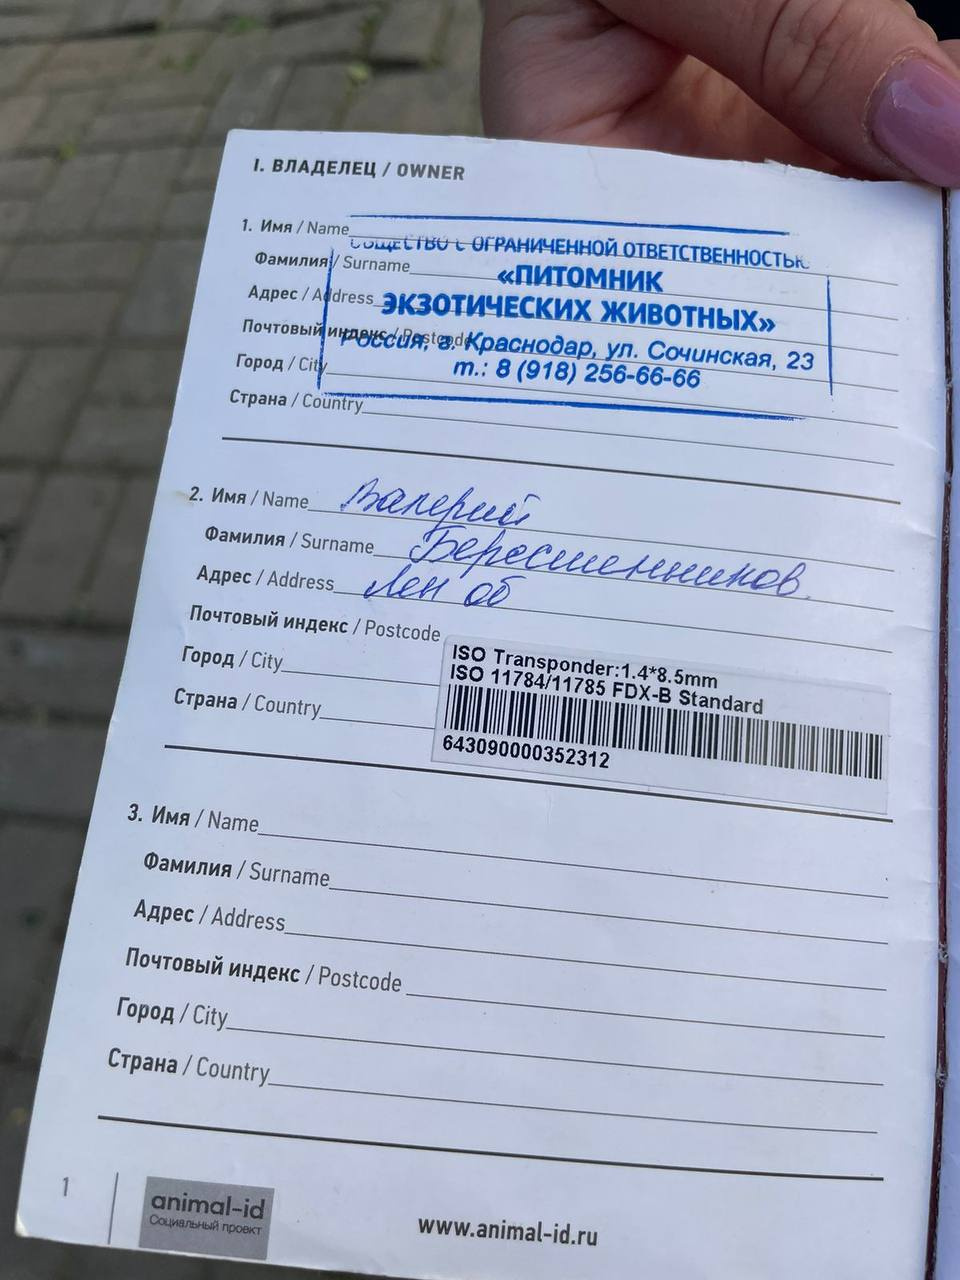 I. ВЛАДЕЛЕЦ / OWNER
1. Имя / Name
ОБЩЕСТВО С ОГРАНИЧЕННОЙ ОТВЕТСТВЕННОСТЬЮ
Фамилия / Surname
«ПИТОМНИК
Адрес / Address
ЭКЗОТИЧЕСКИХ ЖИВОТНЫХ»
Почтовый индекс / Postcode
Россия, г. Краснодар, ул. Сочинская, 23
Город / City
т.: 8 (918) 256-66-66
Страна / Country
2. Имя / Name Валерий
Фамилия / Surname
Адрес / Address Лен об
Почтовый индекс / Postcode
Город / City
Страна / Country
ISO Transponder:1.4*8.5mm
ISO 11784/11785 FDX-B Standard
643090000352312
3. Имя / Name
Фамилия / Surname
Адрес / Address
Почтовый индекс / Postcode
Город / City
Страна / Country
1
animal-id
Социальный проект
www.animal-id.ru